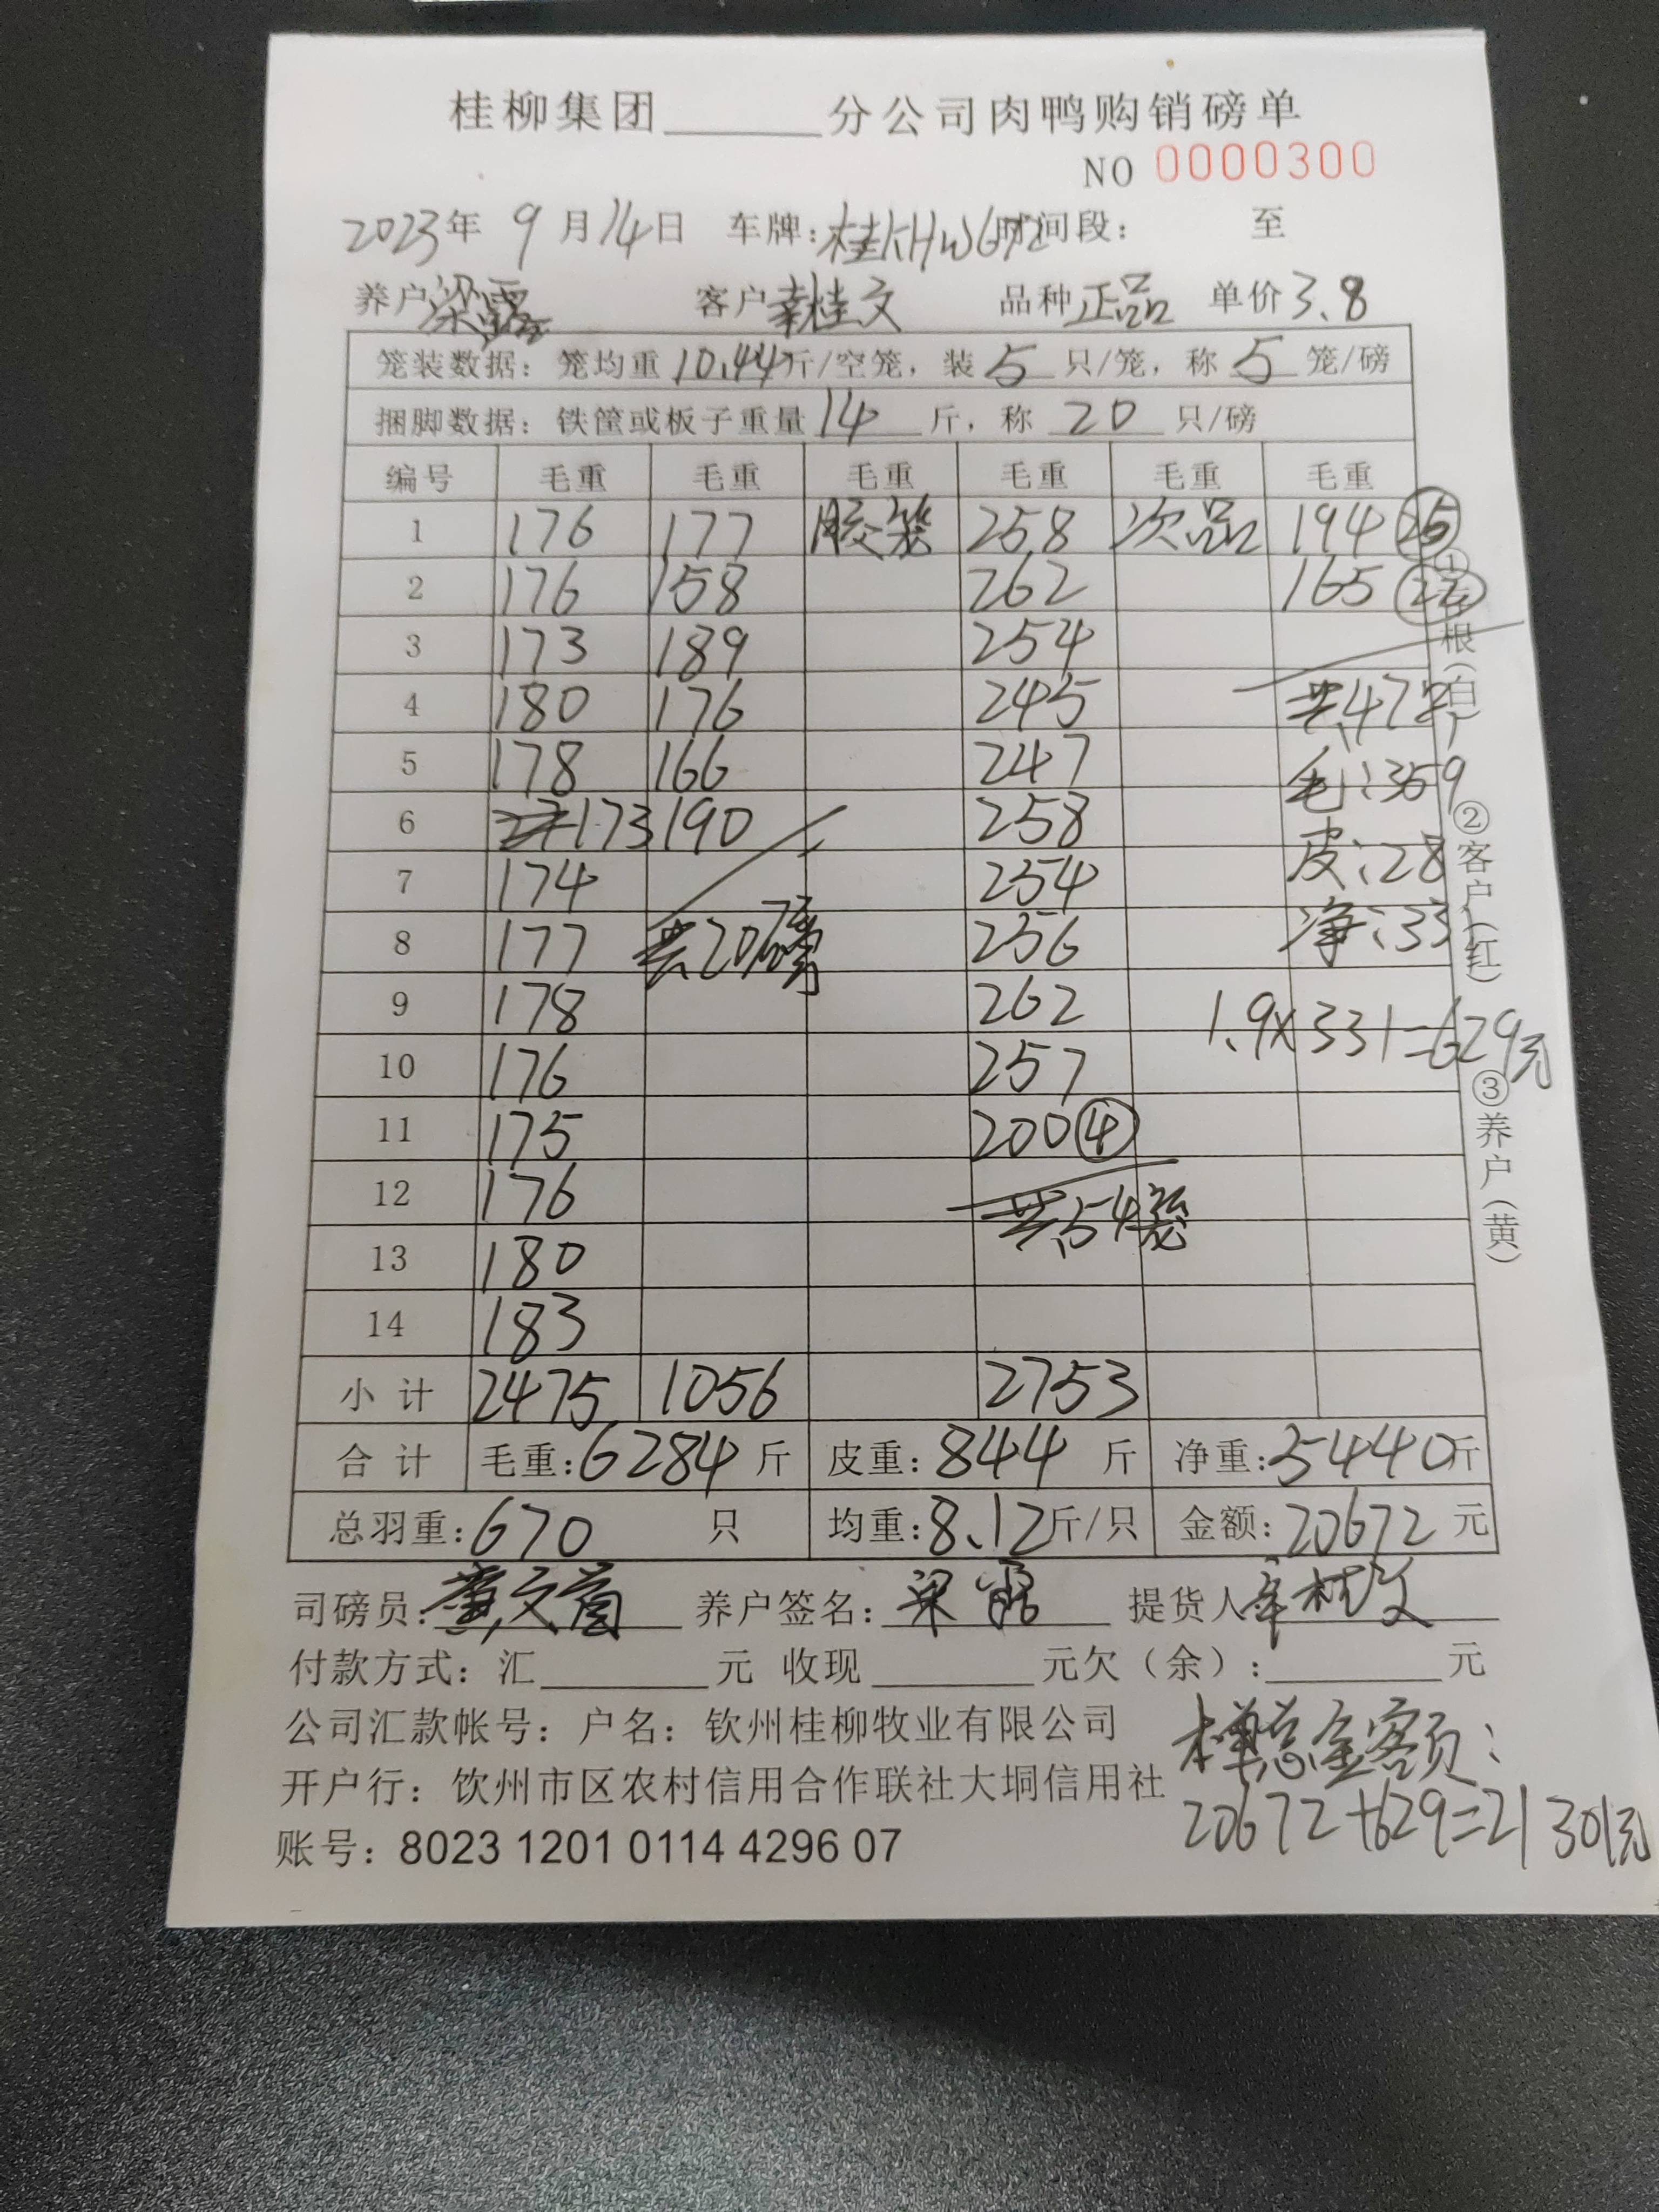 桂柳集团______分公司肉鸭购销磅单
NO 0000300
2023年 9 月14日 车牌:桂KHW672 时间段: 至
养户 梁露 客户 辜桂文 品种 正品 单价 3.8
笼装数据: 笼均重 10.44斤/空笼, 装 5 只/笼, 称 5 笼/磅
捆脚数据: 铁筐或板子重量 14 斤, 称 20 只/磅
编号 毛重 毛重 毛重 毛重 毛重 毛重
1 176 177 胶笼 258 次品 194 25
2 176 158 262 165 22
3 173 189 254
4 180 176 245 共47只
5 178 166 247 毛:359
6 173 190 258 皮:28
7 174 254 净:331
8 177 共20磅 256
9 178 262 1.9×331=629元
10 176 257
11 175 200 ④
12 176 共54笼
13 180
14 183
小 计 2475 1056 2753
合 计 毛重:6284 斤 皮重:844 斤 净重:5440斤
总羽重:670 只 均重:8.12斤/只 金额:20672 元
司磅员: 养户签名:梁露 提货人
付款方式: 汇______元 收现______元欠(余):______元
公司汇款帐号: 户名: 钦州桂柳牧业有限公司
开户行: 饮州市区农村信用合作联社大垌信用社
账号: 8023 1201 0114 4296 07
本单总金额:
20672+629=21301元
①存根(白) ②客户(红) ③养户(黄)